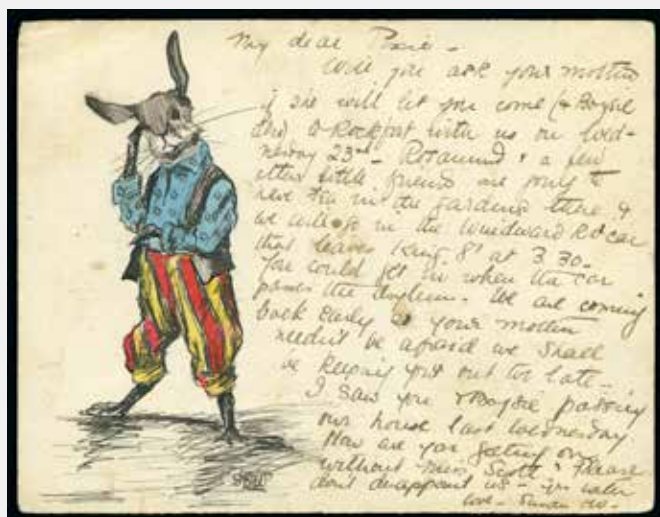 My dear
Will you ask your mother
if she will let you come (& Boysie
too) to Rockfort with us on Wed-
nesday 23rd - Rosamund & a few
other little friends are going to
have tea in the gardens there &
we will go in the Windward Rd car
that leaves King St at 3.30 -
You could get in when the car
passes the Asylum. We are coming
back early so your mother
needn't be afraid we shall
be keeping you out too late -
I saw you & Boysie passing
our house last Wednesday
How are you getting on
without Miss Scott? Please
don't disappoint us -
love -